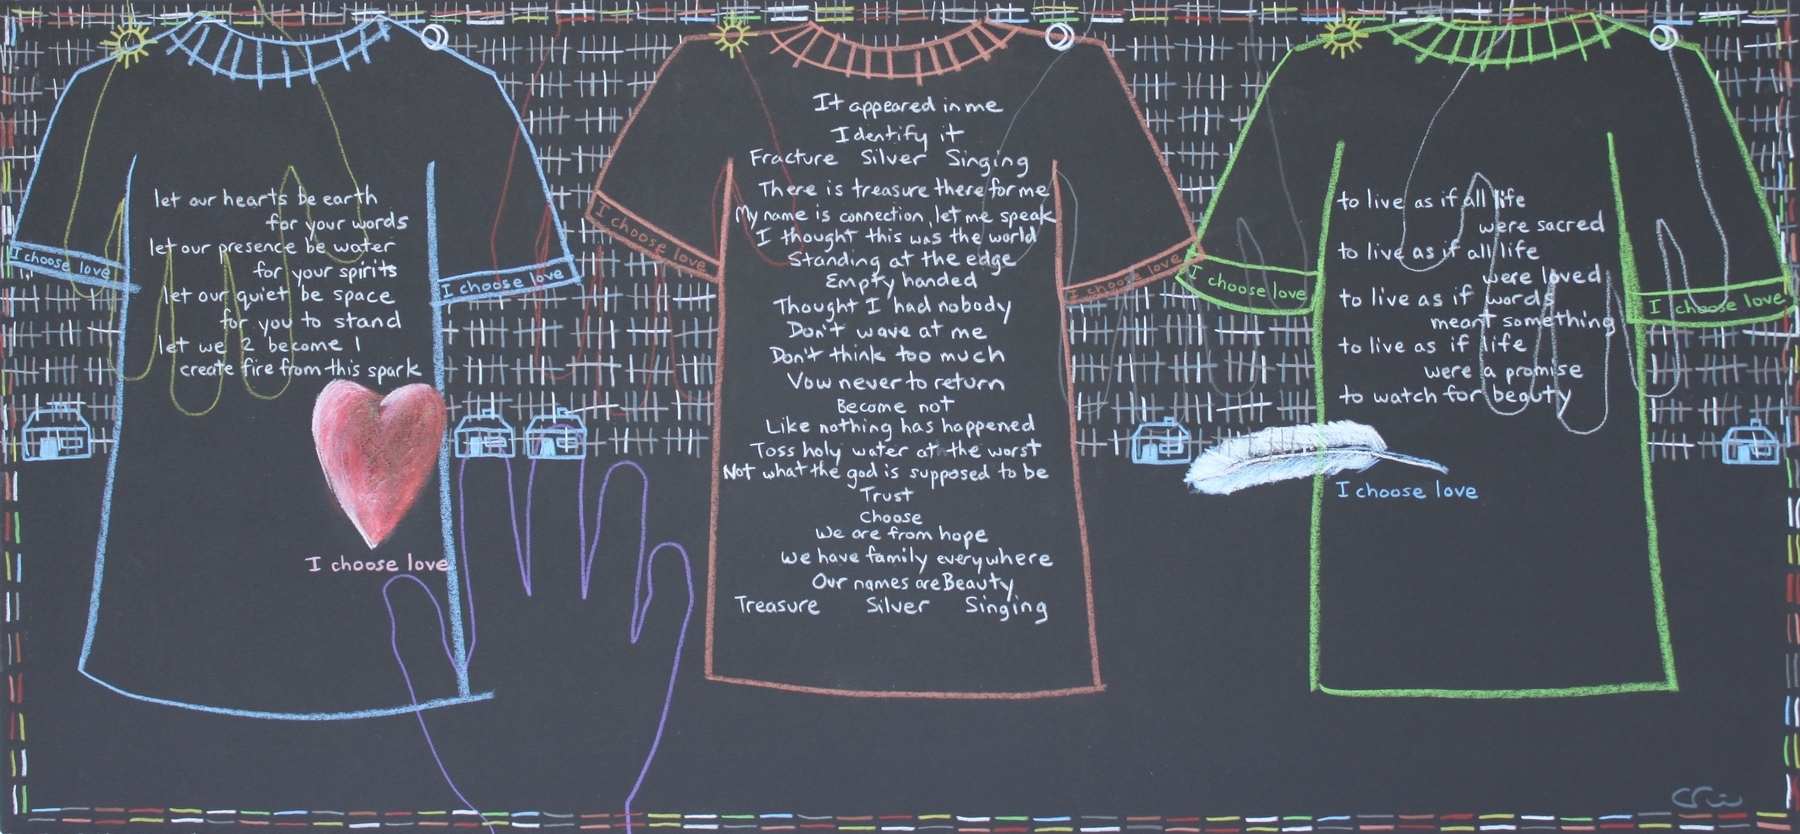 let our hearts be earth
for your words
let our presence be water
for your spirits
let our quiet be space
for you to stand
let we 2 become 1
create fire from this spark
I choose love
I choose love
I choose love
It appeared in me
I identify it
Fracture Silver Singing
There is treasure there for me
My name is connection, let me speak
I thought this was the world
Standing at the edge
Empty handed
Thought I had nobody
Don't wave at me
Don't think too much
Vow never to return
Become not
Like nothing has happened
Toss holy water at the worst
Not what the god is supposed to be
Trust
Choose
We are from hope
We have family everywhere
Our names are Beauty
Treasure Silver Singing
I choose love
I choose love
to live as if all life
were sacred
to live as if all life
were loved
to live as if words
meant something
to live as if life
were a promise
to watch for beauty
I choose love
I choose love
I choose love